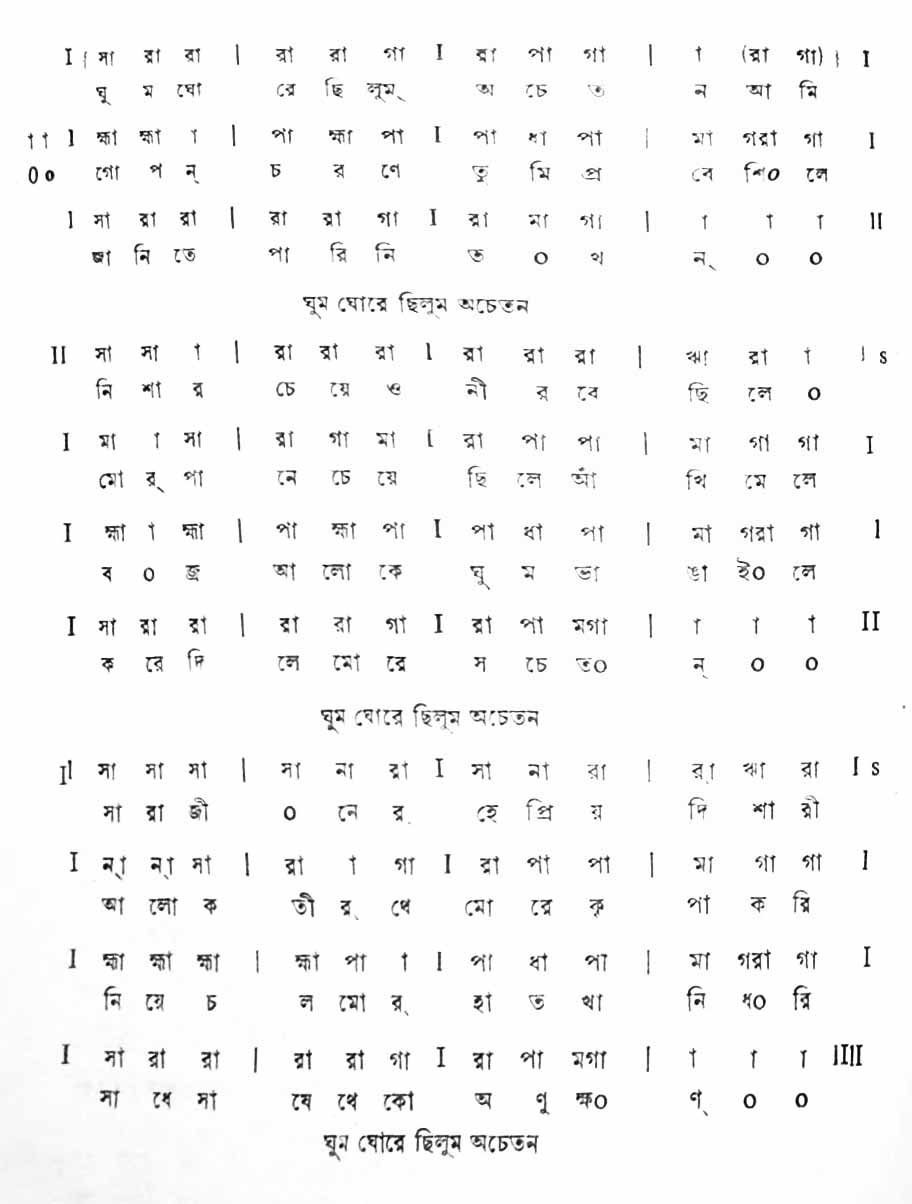 I { সা রা রা | রা রা গা I রা পা গা | া (রা গা) } I
ঘু ম ঘো রে ছি লুম্ অ চে ত ন আ মি
া া I হ্মা হ্মা া | পা হ্মা পা I পা ধা পা | মা গরা গা I
০ ০ গো প ন্ চ র ণে তু মি প্র বে শি০ লে
I সা রা রা | রা রা গা I রা মা গা | া া া II
জা নি তে পা রি নি ত ০ খ ন্ ০ ০
ঘুম ঘোরে ছিলুম অচেতন
II সা সা া | রা রা রা I রা রা রা | ঋা রা া I s
নি শা র চে য়ে ও নী র বে ছি লে ০
I মা া সা | রা গা মা I রা পা পা | মা গা গা I
মো র্ পা নে চে য়ে ছি লে আঁ খি মে লে
I হ্মা া হ্মা | পা হ্মা পা I পা ধা পা | মা গরা গা I
ব ০ জ্র আ লো কে ঘু ম ভা ঙা ই০ লে
I সা রা রা | রা রা গা I রা পা মগা | া া া II
ক রে দি লে মো রে স চে ত০ ন্ ০ ০
ঘুম ঘোরে ছিলুম অচেতন
II সা সা সা | সা না রা I সা না রা | রা ঋা রা I s
সা রা জী ০ নে র্ হে প্রি য় দি শা রী
I ন্া ন্া সা | রা া গা I রা পা পা | মা গা গা I
আ লো ক তী র্ থে মো রে কৃ পা ক রি
I হ্মা হ্মা হ্মা | হ্মা পা া I পা ধা পা | মা গরা গা I
নি য়ে চ ল মো র্ হা ত খা নি ধ০ রি
I সা রা রা | রা রা গা I রা পা মগা | া া া IIII
সা থে সা থে থে কো অ ণু ক্ষ০ ণ্ ০ ০
ঘুম ঘোরে ছিলুম অচেতন